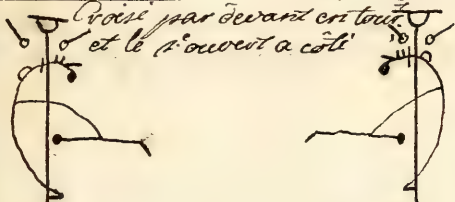 Croisé par devant en tour.
et le r'ouvert a côté